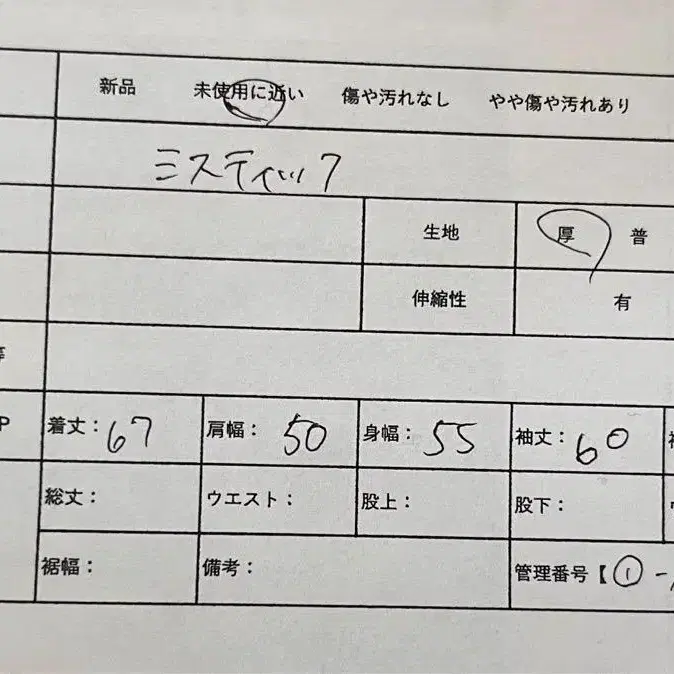 新品 未使用に近い 傷や汚れなし やや傷や汚れあり
ミスティック
生地 厚 普
伸縮性 有
等
P 着丈：67 肩幅：50 身幅：55 袖丈：60
総丈： ウエスト： 股上： 股下：
裾幅： 備考： 管理番号【①-